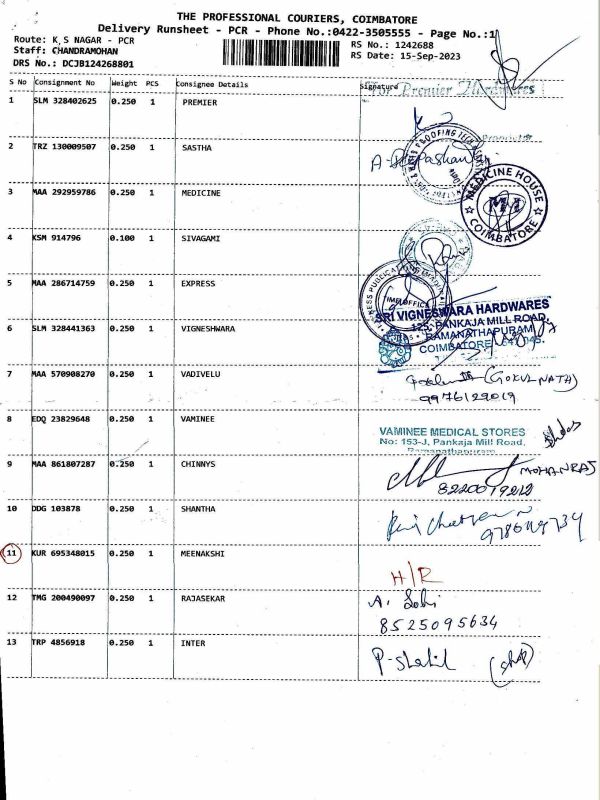 THE PROFESSIONAL COURIERS, COIMBATORE
Delivery Runsheet - PCR - Phone No.:0422-3505555 - Page No.:1
Route: K.S NAGAR - PCR RS No.: 1242688
Staff: CHANDRAMOHAN RS Date: 15-Sep-2023
DRS No.: DCJB124268801
S No Consignment No Weight PCS Consignee Details Signature
For Premier Hardwares
1 SLM 328402625 0.250 1 PREMIER
Proprietor
2 TRZ 130009507 0.250 1 SASTHA
3 MAA 292959786 0.250 1 MEDICINE MEDICINE HOUSE COIMBATORE
4 KSM 914796 0.100 1 SIVAGAMI
5 MAA 286714759 0.250 1 EXPRESS
SRI VIGNESWARA HARDWARES
6 SLM 328441363 0.250 1 VIGNESHWARA 125, PANKAJA MILL ROAD,
RAMANATHAPURAM,
COIMBATORE
7 MAA 570908270 0.250 1 VADIVELU (GOKUL NATH)
9976129019
8 EDQ 23829648 0.250 1 VAMINEE VAMINEE MEDICAL STORES
No: 153-J, Pankaja Mill Road,
Ramanathapuram
9 MAA 861807287 0.250 1 CHINNYS MOHANRAJ
8220019212
10 DDG 103878 0.250 1 SHANTHA
11 KUR 695348015 0.250 1 MEENAKSHI H/R
12 TMG 200490097 0.250 1 RAJASEKAR
8525095634
13 TRP 4856918 0.250 1 INTER